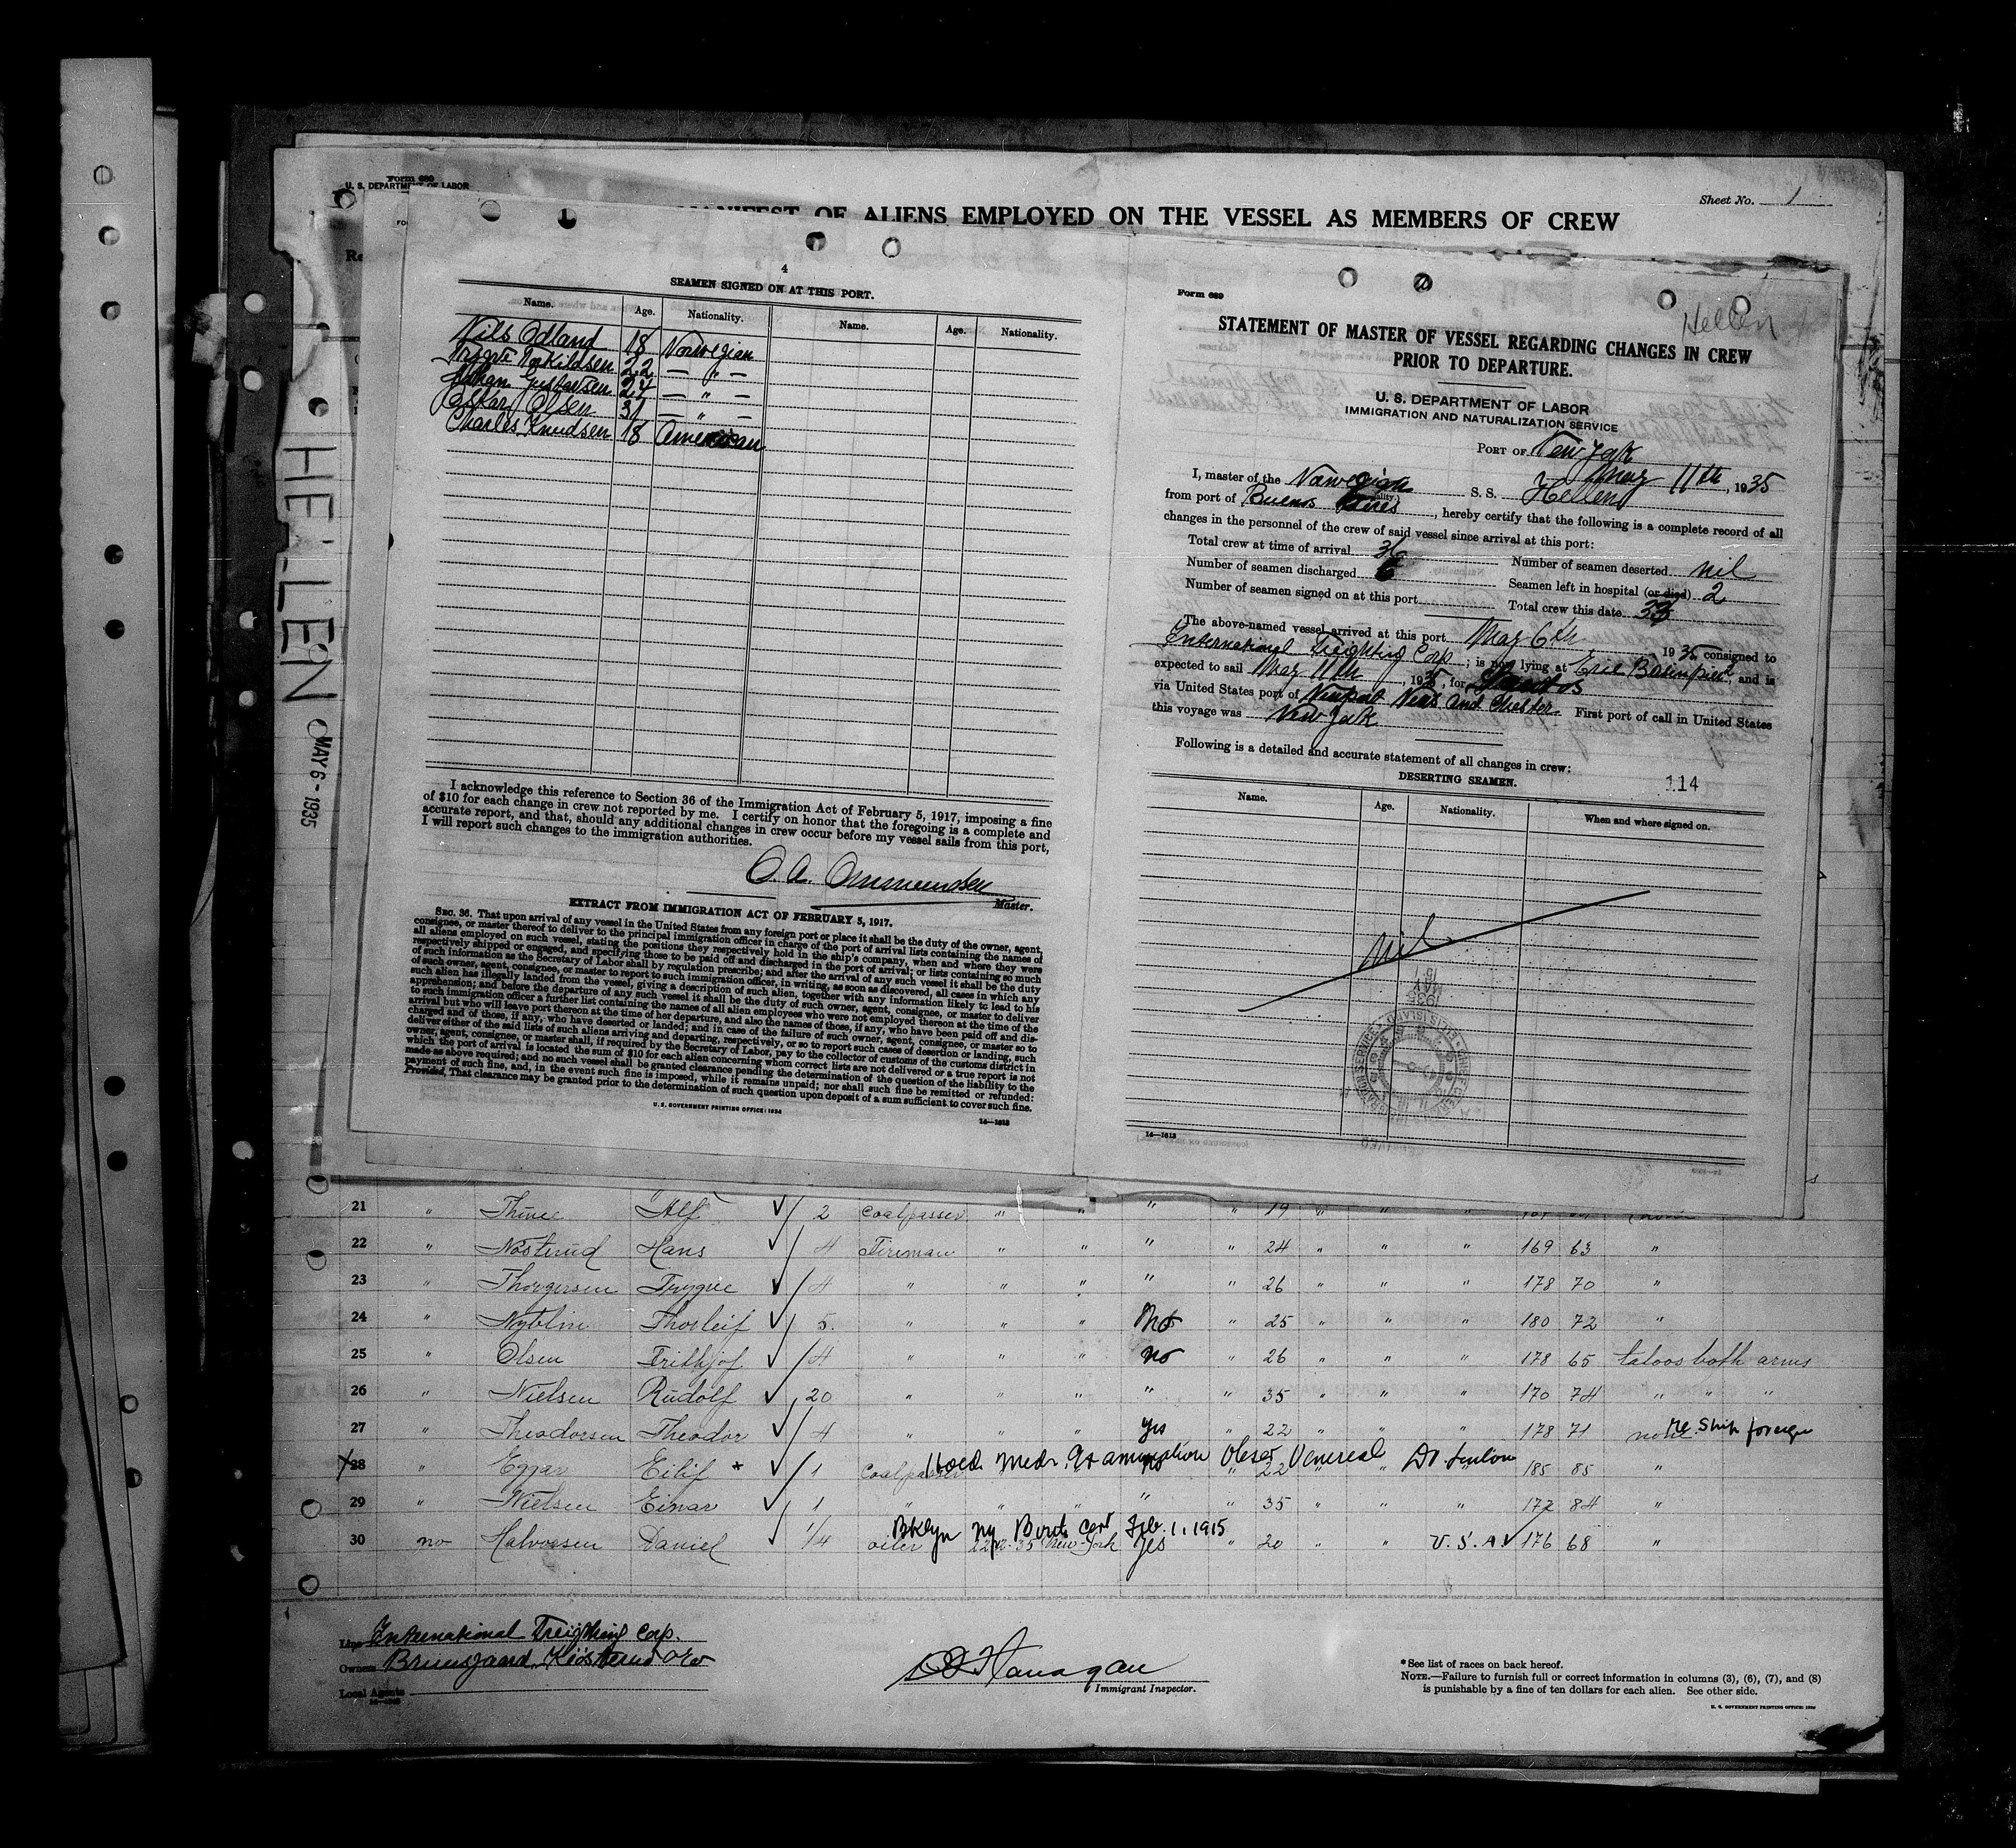 Form 689
U. S. DEPARTMENT OF LABOR
Sheet No. 1
MANIFEST OF ALIENS EMPLOYED ON THE VESSEL AS MEMBERS OF CREW
HELLEN
MAY 6 - 1935
4
SEAMEN SIGNED ON AT THIS PORT.
Name. Age. Nationality. Name. Age. Nationality.
Nils Odland 18 Norwegian
Trygve Torkildsen 22 — " —
Håkan Gustavsen 24 — " —
Oskar Olsen 31 — " —
Charles Knudsen 18 American
I acknowledge this reference to Section 36 of the Immigration Act of February 5, 1917, imposing a fine
of $10 for each change in crew not reported by me. I certify on honor that the foregoing is a complete and
accurate report, and that, should any additional changes in crew occur before my vessel sails from this port,
I will report such changes to the immigration authorities.
O. A. Ommundsen
Master.
EXTRACT FROM IMMIGRATION ACT OF FEBRUARY 5, 1917.
SEC. 36. That upon arrival of any vessel in the United States from any foreign port or place it shall be the duty of the owner, agent,
consignee, or master thereof to deliver to the principal immigration officer in charge of the port of arrival lists containing the names of
all aliens employed on such vessel, stating the positions they respectively hold in the ship's company, when and where they were
respectively shipped or engaged, and specifying those to be paid off and discharged in the port of arrival; or lists containing so much
of such information as the Secretary of Labor shall by regulation prescribe; and after the arrival of any such vessel it shall be the duty
of such owner, agent, consignee, or master to report to such immigration officer, in writing, as soon as discovered, all cases in which any
such alien has illegally landed from the vessel, giving a description of such alien, together with any information likely to lead to his
apprehension; and before the departure of any such vessel it shall be the duty of such owner, agent, consignee, or master to deliver
to such immigration officer a further list containing the names of all alien employees who were not employed thereon at the time of the
arrival but who will leave port thereon at the time of her departure, and also the names of those, if any, who have been paid off and dis-
charged and of those, if any, who have deserted or landed; and in case of the failure of such owner, agent, consignee, or master so to
deliver either of the said lists of such aliens arriving and departing, respectively, or so to report such cases of desertion or landing, such
owner, agent, consignee, or master shall, if required by the Secretary of Labor, pay to the collector of customs of the customs district in
which the port of arrival is located the sum of $10 for each alien concerning whom correct lists are not delivered or a true report is not
made as above required; and no such vessel shall be granted clearance pending the determination of the question of the liability to the
payment of such fine, and, in the event such fine is imposed, while it remains unpaid; nor shall such fine be remitted or refunded:
Provided, That clearance may be granted prior to the determination of such question upon deposit of a sum sufficient to cover such fine.
U. S. GOVERNMENT PRINTING OFFICE: 1934
14—1613
Form 689
Hellen
STATEMENT OF MASTER OF VESSEL REGARDING CHANGES IN CREW
PRIOR TO DEPARTURE.
U. S. DEPARTMENT OF LABOR
IMMIGRATION AND NATURALIZATION SERVICE
PORT OF New York
May 11th, 1935
I, master of the Norwegian S. S. Hellen
from port of Buenos Aires, hereby certify that the following is a complete record of all
changes in the personnel of the crew of said vessel since arrival at this port:
Total crew at time of arrival 36 Number of seamen deserted nil
Number of seamen discharged 6 Seamen left in hospital (or died) 2
Number of seamen signed on at this port Total crew this date 33
The above-named vessel arrived at this port May 6th 1935 consigned to
International Freighting Corp; is now lying at Erie Basin pier 2, and is
expected to sail May 11th, 1935, for Santos
via United States port of Newport News and Chester. First port of call in United States
this voyage was New York
Following is a detailed and accurate statement of all changes in crew:
DESERTING SEAMEN. 114
Name. Age. Nationality. When and where signed on.
Nil
14—1613
21 " Thinee Alf 2 Coalpasser " " " " 19 " " "
22 " Nøstrud Hans 4 Fireman " " " " 24 " " " 169 63 "
23 " Thorgersen Trygve 4 " " " " " 26 " " " 178 70 "
24 " Nyblin Thorleif 5 " " " No " 25 " " " 180 72 "
25 " Olsen Frithjof 4 " " " no " 26 " " " 178 65 tatoos both arms
26 " Nielsen Rudolf 20 " " " " " 35 " " " 170 74 " " "
27 " Theodorsen Theodor 4 " " " yes " 22 " " " 178 71 none Re Ship foreign
Hold Med. Examination Obser Venereal Dr.
28 " Eggar Eilif * 1 Coalpasser " " no " 22 " " " 185 85 "
29 " Nielsen Einar 1 " " " " " 35 " " " 172 84 "
Bklyn NY Birth Cert Feb. 1, 1915
30 no Halvorsen Daniel 1/4 oiler New-York yes " 20 " " U.S.A. 176 68 "
Line International Freighting Corp.
Owners Bruusgaard, Kiøsterud
Local Agents
14—1613
Flanagan
Immigrant Inspector.
* See list of races on back hereof.
NOTE.—Failure to furnish full or correct information in columns (3), (6), (7), and (8)
is punishable by a fine of ten dollars for each alien. See other side.
U. S. GOVERNMENT PRINTING OFFICE: 1930